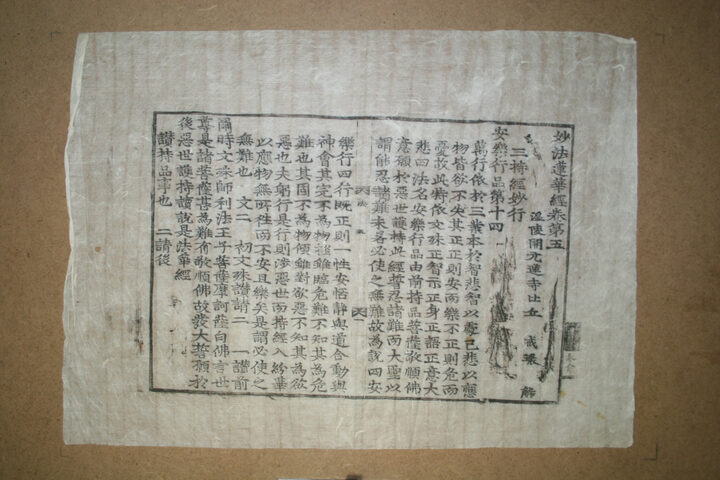 妙法蓮華經卷第五
溫陵開元蓮寺比丘 戒環 解
三持經妙行
安樂行品第十四
萬行依於三業本於智悲智以處己悲以應
物皆欲不失其正正則安而樂不正則危而
憂故此特依文殊正智示正身正語正意大
悲四法名安樂行品由前持品菩薩敬順佛
意願於惡世護持此經普忍諸難而大聖以
謂能忍諸難未若必使之無難故爲說四安
樂行四行旣正則一性安恬靜與道合動與
神會其定不爲物撓雖臨危難不知其爲危
難也其固不爲物傾雖對欲惡不知其爲欲
惡也夫躬行是行則涉惡世而持經入紛華
以應物無所往而不安且樂矣是謂必使之
無難也 文二 初文殊讚請二 一讚前
爾時文殊師利法王子菩薩摩訶薩白佛言世
尊是諸菩薩甚爲難有敬順佛故發大誓願於
後惡世護持讀說是法華經
讚持品事也 二請後